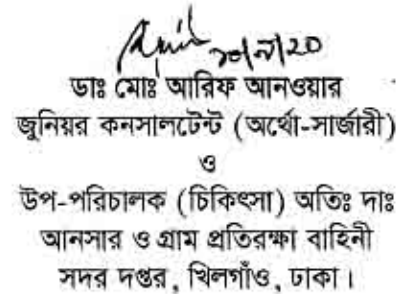 ডাঃ মোঃ আরিফ আনওয়ার
জুনিয়র কনসালটেন্ট (অর্থো-সার্জারী)
ও
উপ-পরিচালক (চিকিৎসা) অতিঃ দাঃ
আনসার ও গ্রাম প্রতিরক্ষা বাহিনী
সদর দপ্তর, খিলগাঁও, ঢাকা।